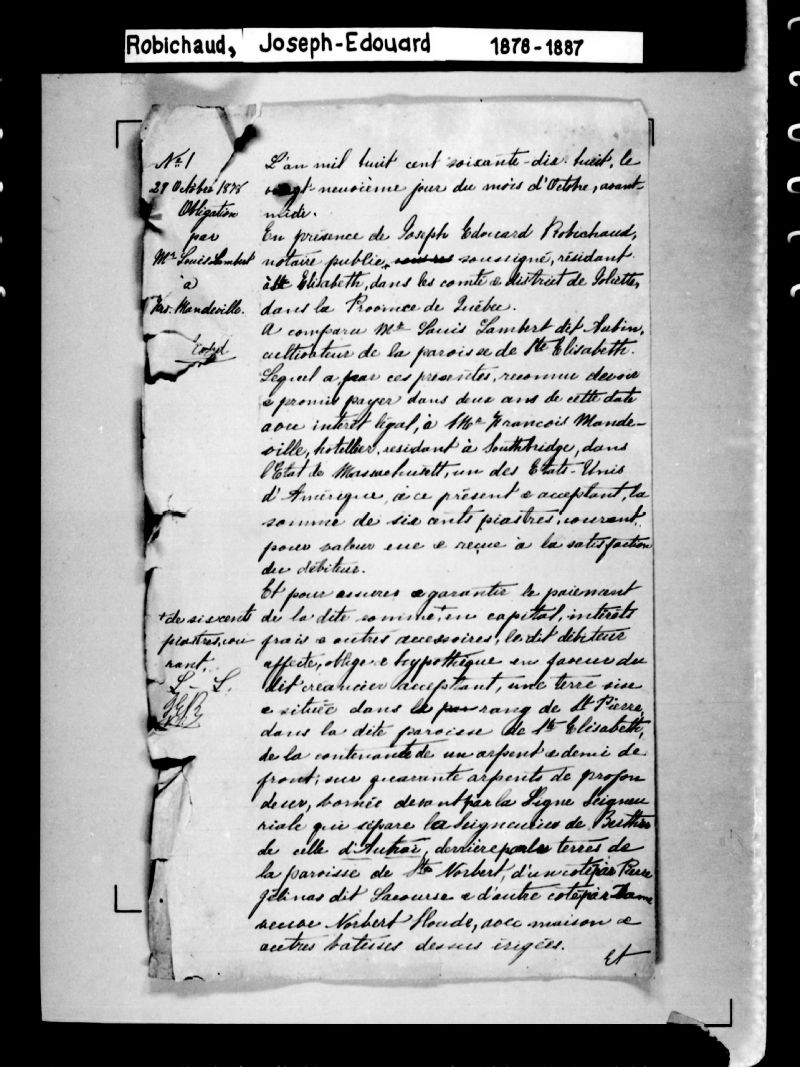 Robichaud, Joseph-Edouard 1878-1887
No 1
29 Octobre 1878
Obligation
par
Mr Louis Lambert
à
Frs. Mandeville.
L'an mil huit cent soixante-dix-huit, le
vingt-neuvième jour du mois d'Octobre, avant-
midi.
En présence de Joseph Edouard Robichaud,
notaire public, + soussigné, résidant
à Ste Elisabeth, dans les comté & district de Joliette,
dans la Province de Québec.
A comparu Mr Louis Lambert dit Aubin,
cultivateur de la paroisse de Ste Elisabeth.
Lequel a par ces présentes, reconnu devoir
& promis payer dans deux ans de cette date
avec intérêt légal, à Mr Francois Mande-
ville, hotellier, residant à Southbridge, dans
l'Etat de Massachusett, un des Etats-Unis
d'Amérique, à ce présent & acceptant, la
somme de six cents piastres, courant,
pour valeur eue & reçue à la satisfaction
du débiteur.
Et pour assurer & garantir le paiement
de la dite somme + en capital, intérêts
frais & autres accessoires, le dit débiteur
affecte, oblige & hypothèque en faveur du
dit créancier acceptant, une terre sise
& située dans le rang de St Pierre,
dans la dite paroisse de Ste Elisabeth,
de la contenance de un arpent & demi de
front, sur quarante arpents de profon
deur, bornée devant par la Ligne Seigneu
riale qui sépare la Seigneurie de Berthier
de celle d'Autraï, derrière par les terres de
la paroisse de St Norbert, d'un coté par Pierre
Gélinas dit Lacourse & d'autre coté par Dame
veuve Norbert Houde, avec maison &
autres batisses dessus érigées.
Et
+ de six cents
piastres, cou
rant.
L. L.
J.E.R.